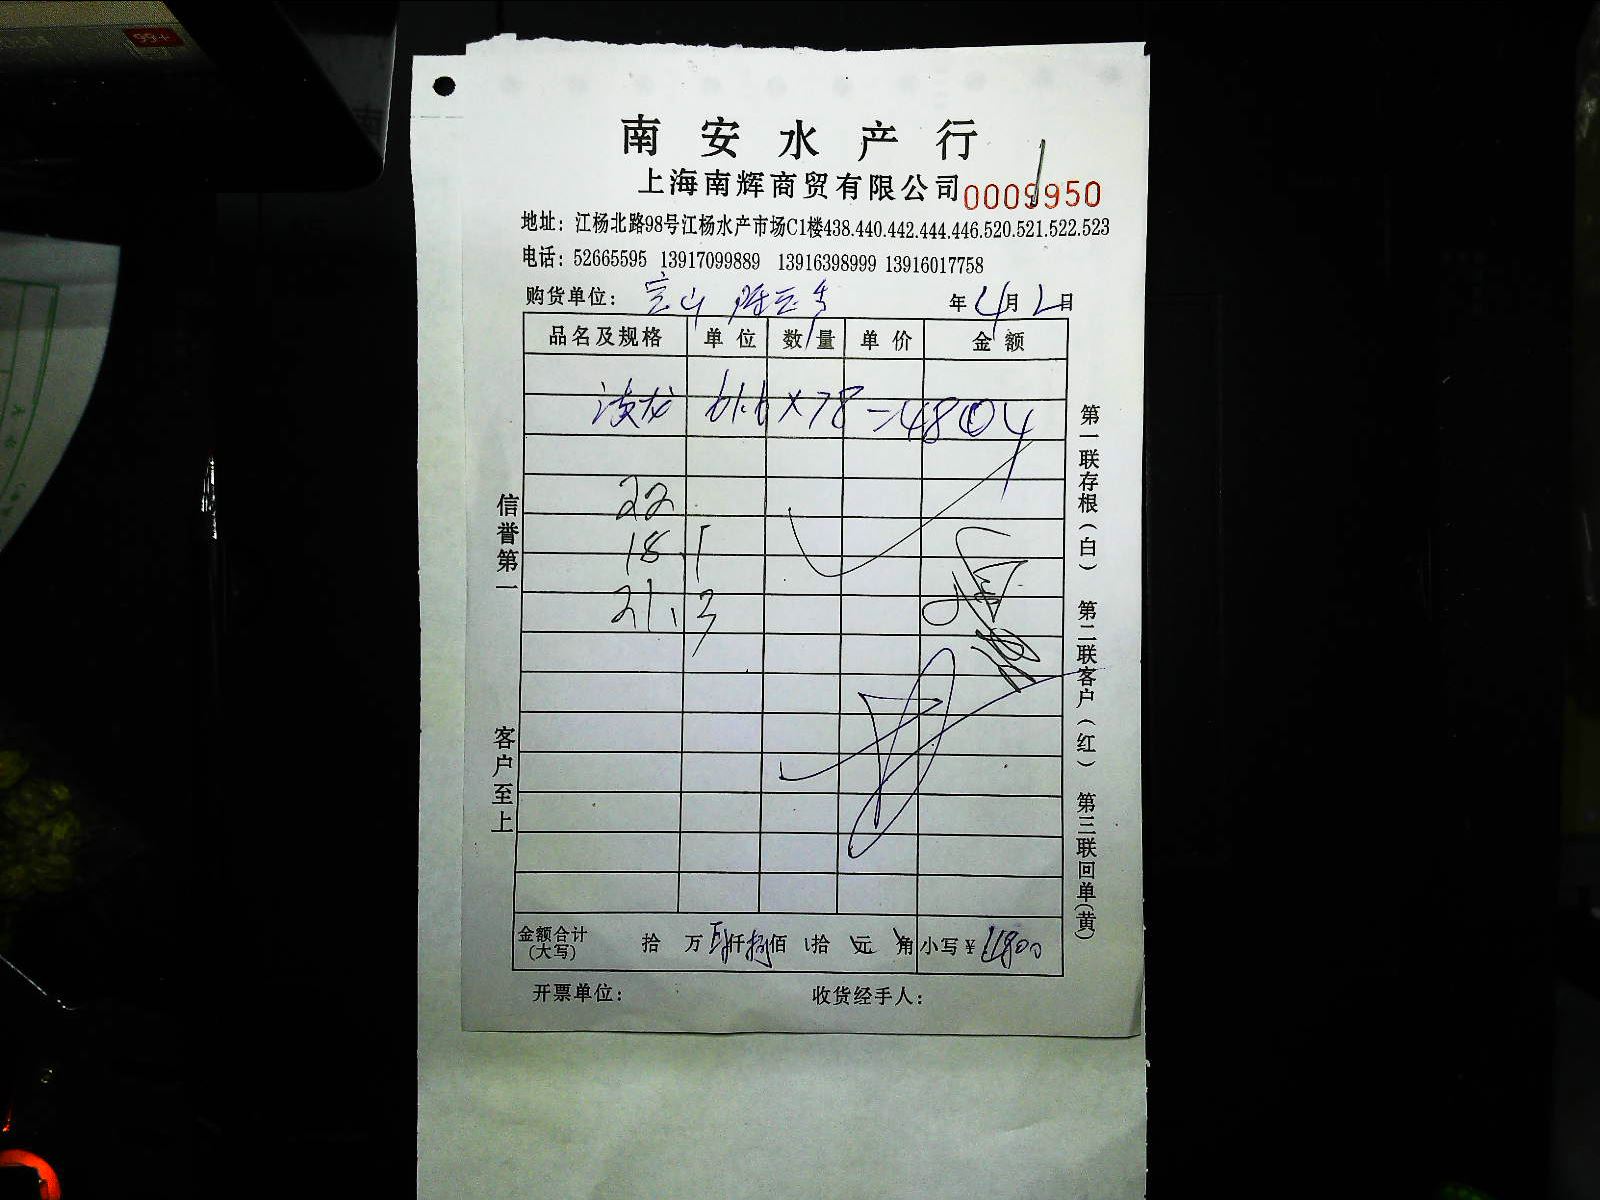 99+
南安水产行
上海南辉商贸有限公司 0009950
地址：江杨北路98号江杨水产市场C1楼438.440.442.444.446.520.521.522.523
电话：52665595 13917099889 13916398999 13916017758
购货单位：宝山 年4月2日
品名及规格 单位 数量 单价 金额
61.6×78=4804
22
18.
21.3
信誉第一 客户至上
第一联存根（白） 第二联客户（红） 第三联回单（黄）
金额合计（大写） 拾 万 仟捌佰 拾 元 角 小写¥
开票单位： 收货经手人：